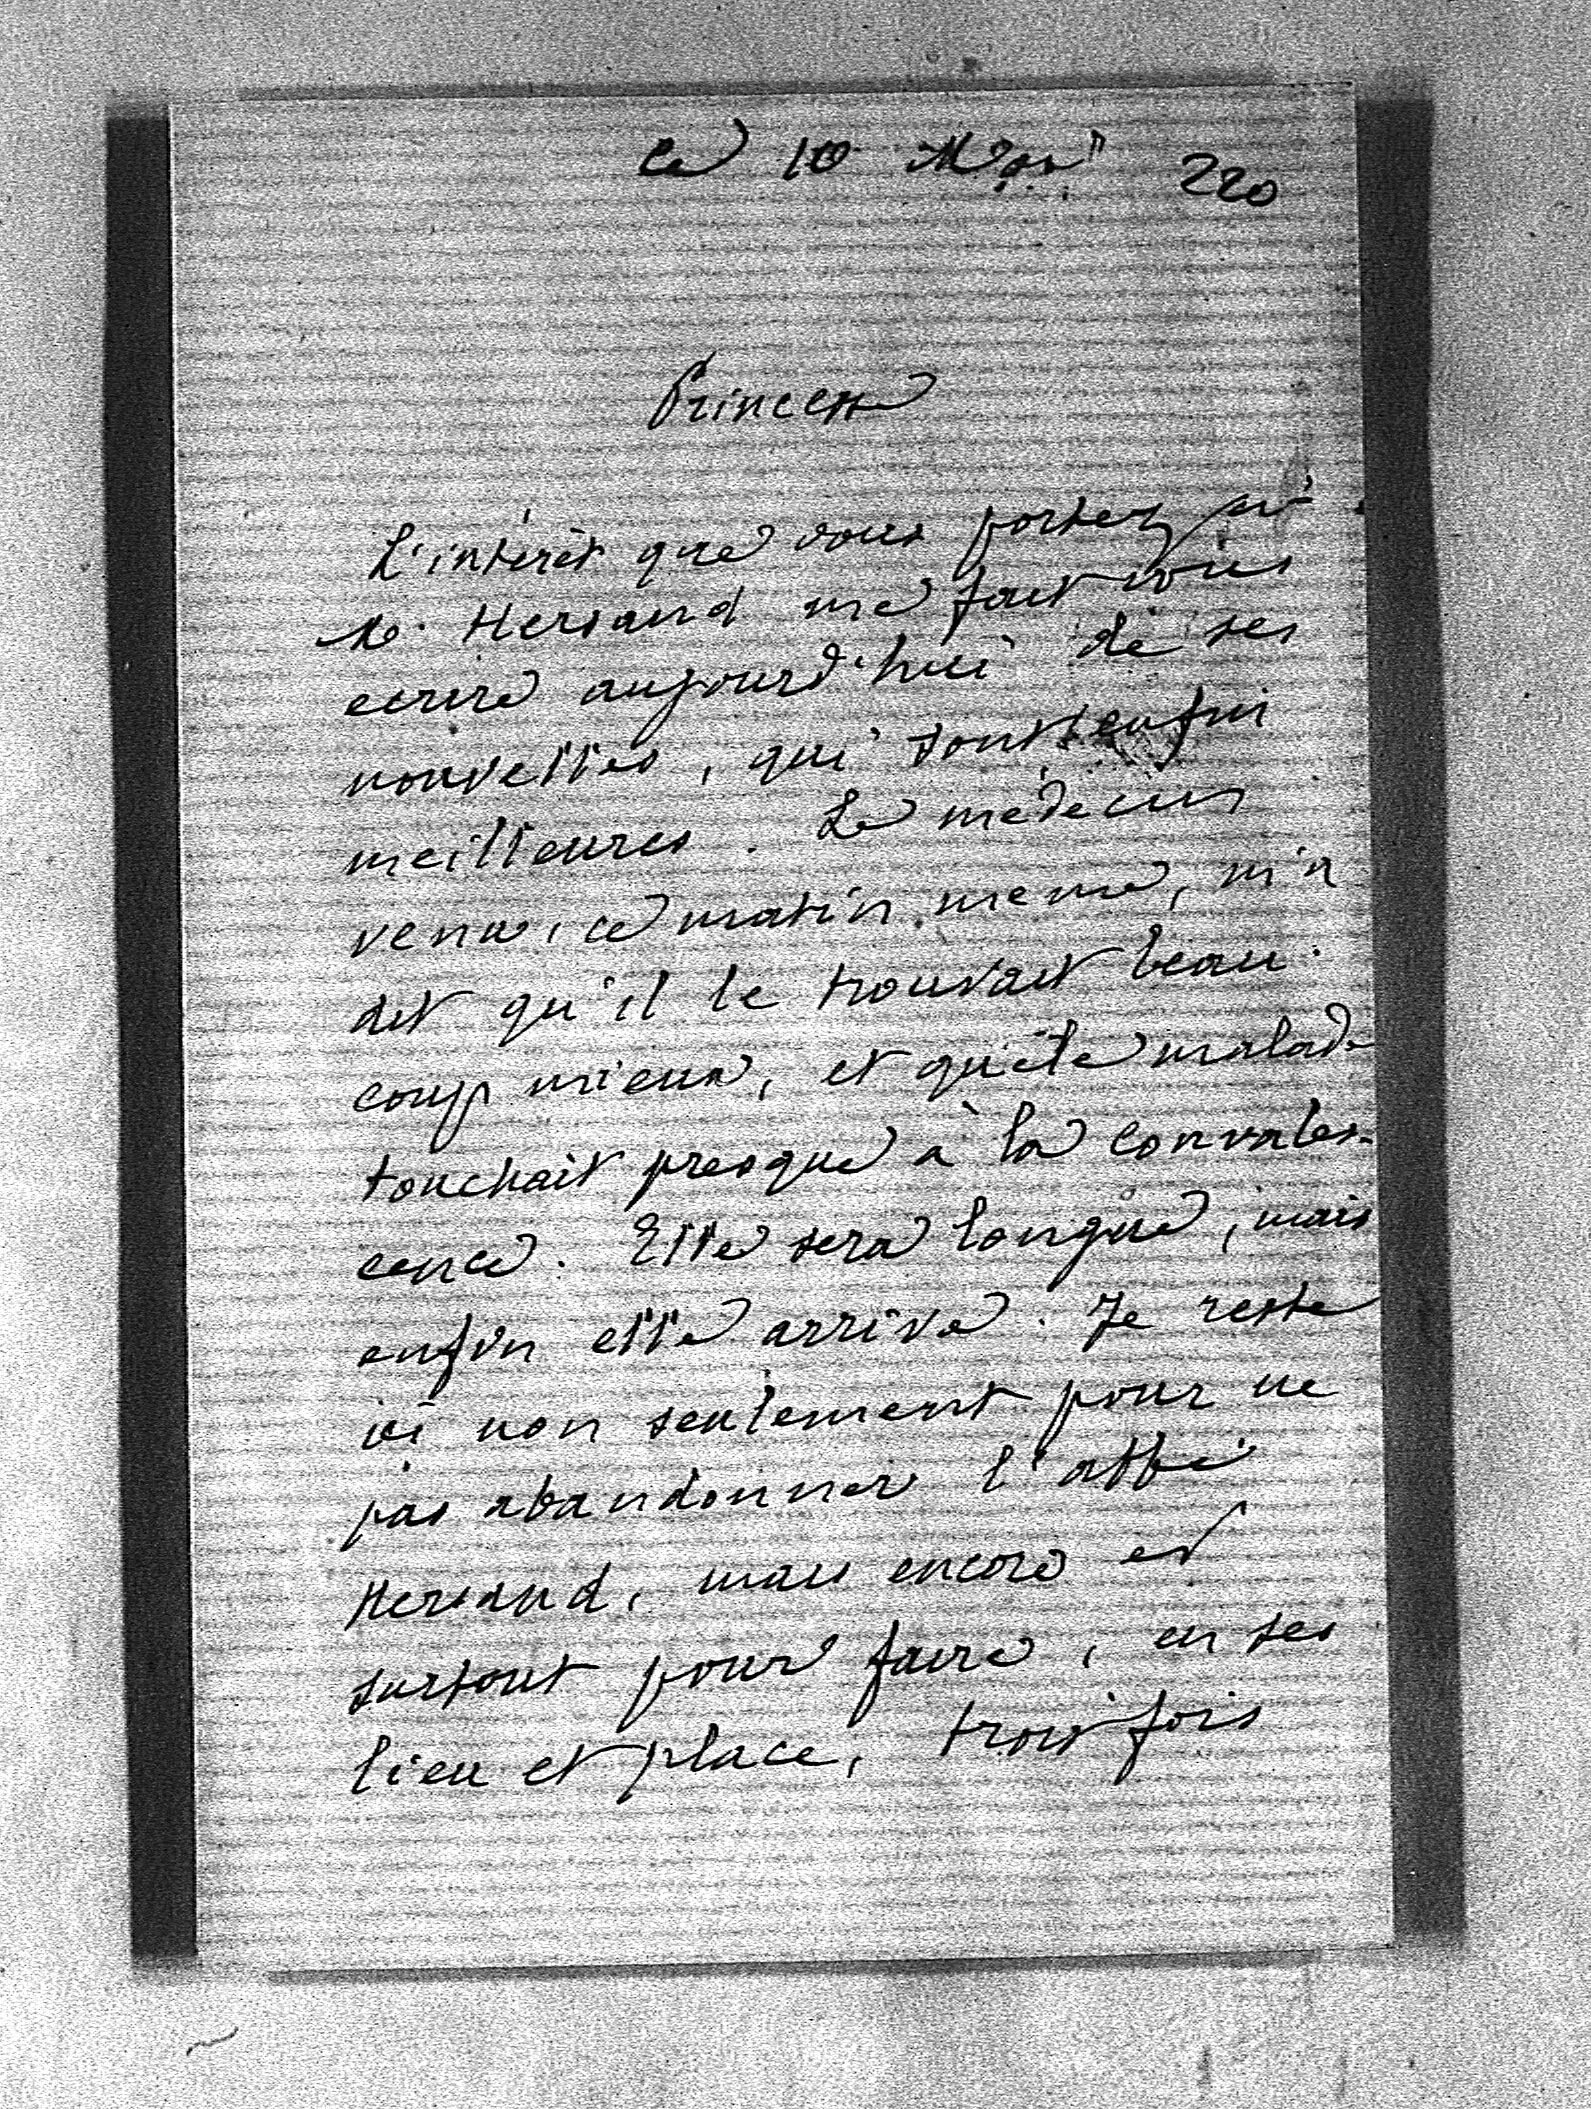 ce 10 Mars
220
Princesse
L'intérêt que vous portez à
M. Hersand me fait vous
ecrire aujourd'hui de ses
nouvelles, qui sont enfin
meilleures. Le médecin
venu, ce matin meme, m'a
dit qu'il le trouvait beau-
coup mieux, et que le malade
touchait presque à la convales-
cence. Elle sera longue, mais
enfin elle arrive. Je reste
ici non seulement pour ne
pas abandonner l'abbé
Hersand, mais encore et
surtout pour faire, en ses
lieu et place, trois fois